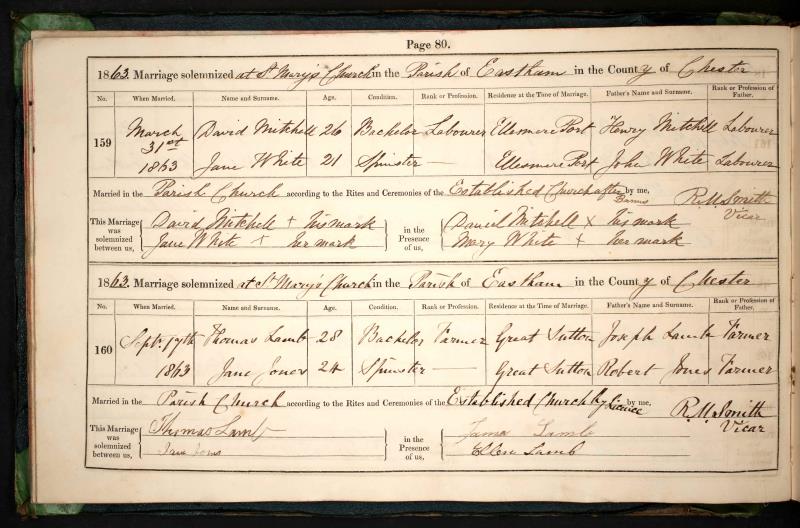 Page 80.
1863. Marriage solemnized at St Mary's Church in the Parish of Eastham in the County of Chester
No. When Married. Name and Surname. Age. Condition. Rank or Profession. Residence at the Time of Marriage. Father's Name and Surname. Rank or Profession of Father.
159 March 31st 1863 David Mitchell 26 Bachelor Labourer Ellesmere Port Henry Mitchell Labourer
Jane White 21 Spinster — Ellesmere Port John White Labourer
Married in the Parish Church according to the Rites and Ceremonies of the Established Church after Banns by me, R. M. Smith Vicar
This Marriage was solemnized between us, David Mitchell + his mark
Jane White + her mark
in the Presence of us, Daniel Mitchell x his mark
Mary White + her mark
1863. Marriage solemnized at St Mary's Church in the Parish of Eastham in the County of Chester
No. When Married. Name and Surname. Age. Condition. Rank or Profession. Residence at the Time of Marriage. Father's Name and Surname. Rank or Profession of Father.
160 Sept. 17th 1863 Thomas Lamb 28 Bachelor Farmer Great Sutton Joseph Lamb Farmer
Jane Jones 24 Spinster — Great Sutton Robert Jones Farmer
Married in the Parish Church according to the Rites and Ceremonies of the Established Church by Licence by me, R. M. Smith Vicar
This Marriage was solemnized between us, Thomas Lamb
Jane Jones
in the Presence of us, Lamb
Ellen Lamb